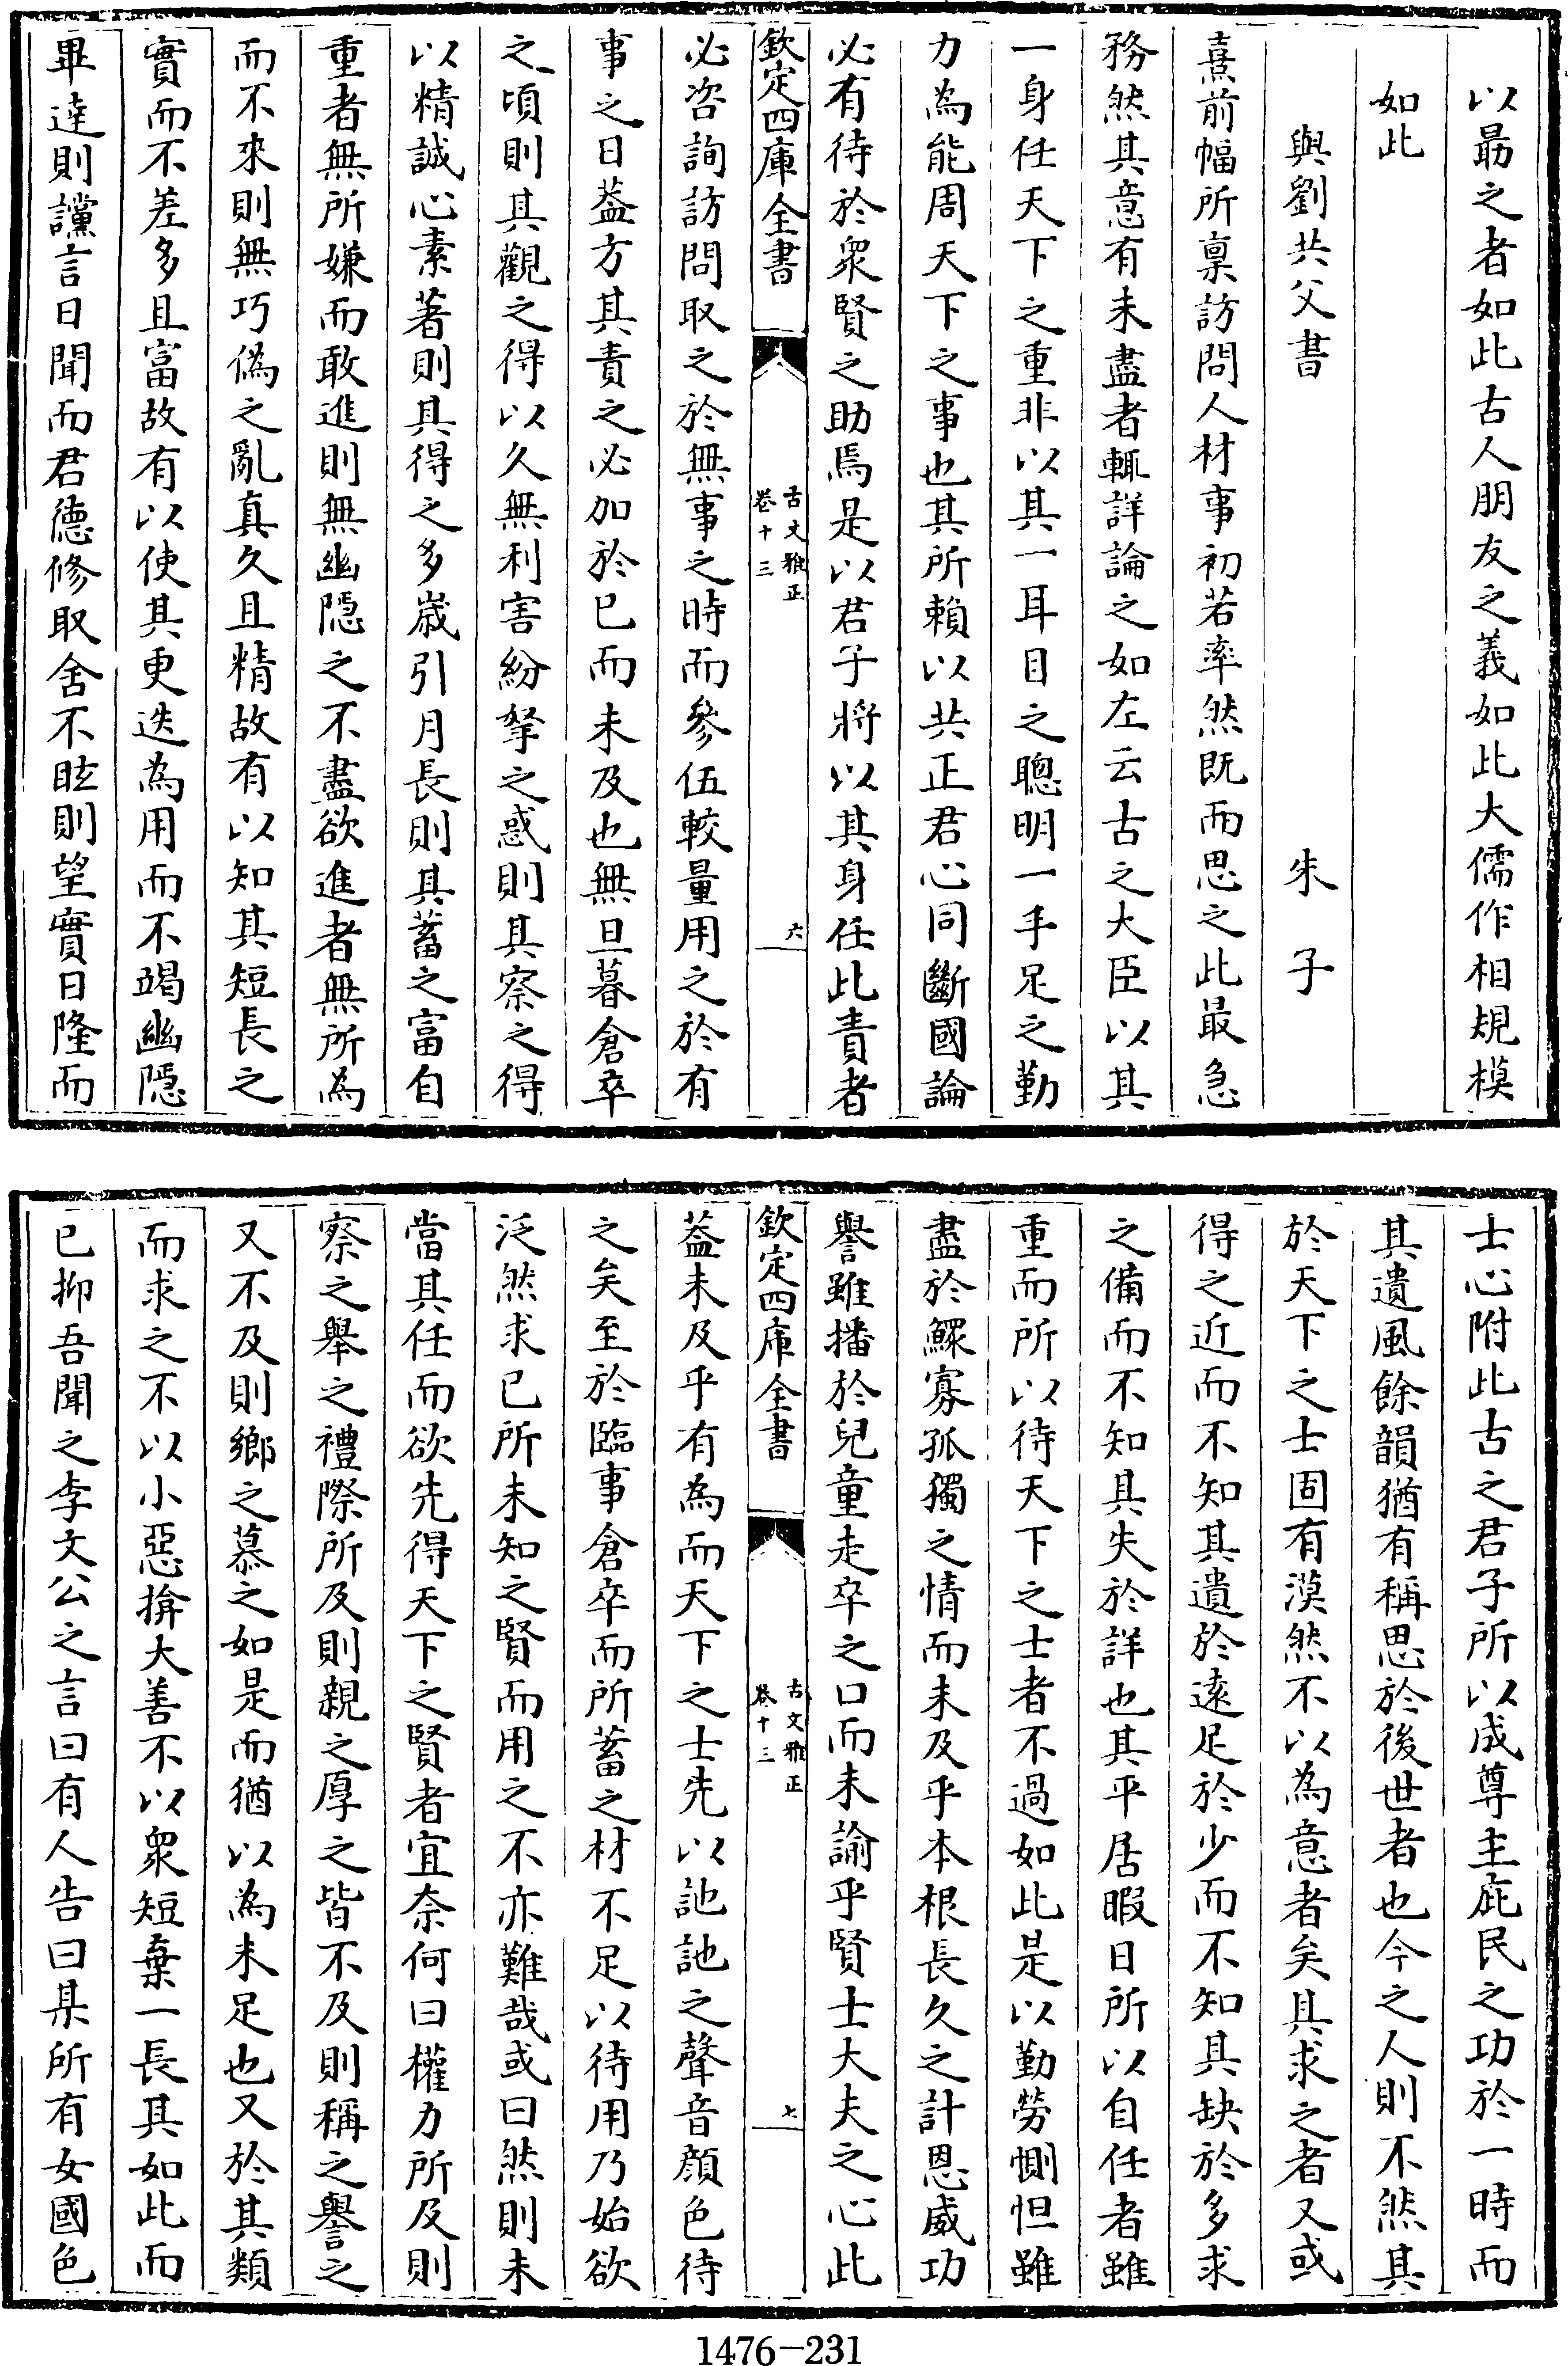 以勗之者如此古人朋友之義如此大儒作相規模
如此
與劉共父書　朱子
熹前幅所稟訪問人材事初若率然既而思之此最急
務然其意有未盡者輒詳論之如左云古之大臣以其
一身任天下之重非以其一耳目之聰明一手足之勤
力為能周天下之事也其所賴以共正君心同斷國論
必有待於衆賢之助焉是以君子將以其身任此責者
欽定四庫全書
古文雅正
卷十三
六
必咨詢訪問取之於無事之時而參伍較量用之於有
事之日葢方其責之必加於已而未及也無旦暮倉卒
之頃則其觀之得以久無利害紛拏之惑則其察之得
以精誠心素著則其得之多嵗引月長則其蓄之富自
重者無所嫌而敢進則無幽隠之不盡欲進者無所為
而不來則無巧偽之亂真久且精故有以知其短長之
實而不差多且富故有以使其更迭為用而不竭幽隠
畢達則讜言日聞而君德修取舍不眩則望實日隆而
士心附此古之君子所以成尊主庇民之功於一時而
其遺風餘韻猶有稱思於後世者也今之人則不然其
於天下之士固有漠然不以為意者矣其求之者又或
得之近而不知其遺於逺足於少而不知其缺於多求
之備而不知其失於詳也其平居暇日所以自任者雖
重而所以待天下之士者不過如此是以勤勞惻怛雖
盡於鰥寡孤獨之情而未及乎本根長久之計恩威功
譽雖播於兒童走卒之口而未諭乎賢士大夫之心此
欽定四庫全書
古文雅正
卷十三
七
葢未及乎有為而天下之士先以訑訑之聲音顔色待
之矣至於臨事倉卒而所蓄之材不足以待用乃始欲
泛然求已所未知之賢而用之不亦難哉或曰然則未
當其任而欲先得天下之賢者宜奈何曰權力所及則
察之舉之禮際所及則親之厚之皆不及則稱之譽之
又不及則鄉之慕之如是而猶以為未足也又於其類
而求之不以小惡揜大善不以衆短棄一長其如此而
已抑吾聞之李文公之言曰有人告曰某所有女國色
1476-231